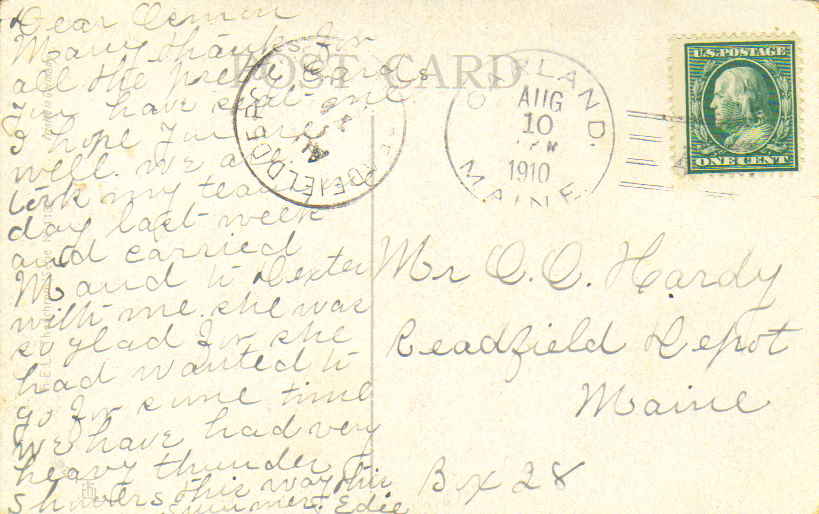 Dear
Many thanks for
all the Post Cards
you have sent me
I hope you are
well. we a
took my team
day last week
and carried
Maud to Dexter
with me. she was
so glad for she
had wanted to
go for some time
we have had very
heavy thunder
showers this way this
summer. Edie
POST CARD
OAKLAND.
AUG
10
1910
MAINE
U.S. POSTAGE
ONE CENT
Mr O. O. Hardy
Readfield Depot
Maine
Box 28